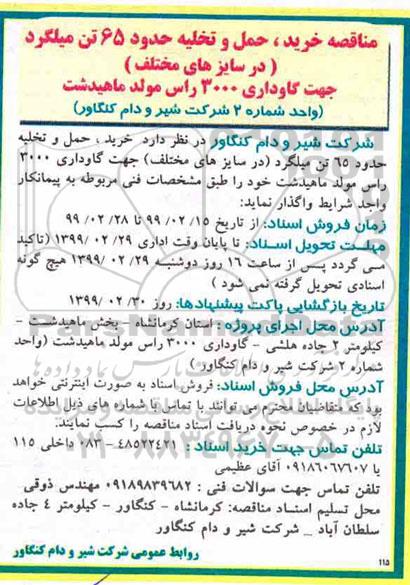 مناقصه خرید ، حمل و تخلیه حدود ۶۵ تن میلگرد
( در سایز های مختلف )
جهت گاوداری ۳۰۰۰ راس مولد ماهیدشت
(واحد شماره ۲ شرکت شیر و دام کنگاور)
شرکت شیر و دام کنگاور در نظر دارد خرید ، حمل و تخلیه
حدود ۶۵ تن میلگرد (در سایز های مختلف) جهت گاوداری ۳۰۰۰
راس مولد ماهیدشت خود را طبق مشخصات فنی مربوطه به پیمانکار
واجد شرایط واگذار نماید:
زمان فروش اسناد: از تاریخ ۹۹/۰۲/۱۵ تا ۹۹/۰۲/۲۸
مهلت تحویل اسناد: تا پایان وقت اداری ۱۳۹۹/۰۲/۲۹ (تاکید
می گردد پس از ساعت ۱۶ روز دوشنبه ۱۳۹۹/۰۲/۲۹ هیچ گونه
اسنادی تحویل گرفته نمی شود )
تاریخ بازگشایی پاکت پیشنهادها: روز ۱۳۹۹/۰۲/۳۰
آدرس محل اجرای پروژه : استان کرمانشاه – بخش ماهیدشت –
کیلومتر ۲ جاده هلشی – گاوداری ۳۰۰۰ راس مولد ماهیدشت (واحد
شماره ۲ شرکت شیر و دام کنگاور )
آدرس محل فروش اسناد: فروش اسناد به صورت اینترنتی خواهد
بود که متقاضیان محترم می توانند با تماس با شماره های ذیل اطلاعات
لازم در خصوص نحوه دریافت اسناد مناقصه را کسب نمایند:
تلفن تماس جهت خرید اسناد : ۴۸۵۲۲۴۲۱ – ۰۸۳ داخلی ۱۱۵
یا ۰۹۱۸۶۰۶۷۶۰۷ آقای عظیمی
تلفن تماس جهت سوالات فنی : ۰۹۱۸۹۸۳۹۶۸۲ مهندس ذوقی
محل تسلیم اسناد مناقصه: کرمانشاه – کنگاور – کیلومتر ۴ جاده
سلطان آباد _ شرکت شیر و دام کنگاور
روابط عمومی شرکت شیر و دام کنگاور
۱۱۵